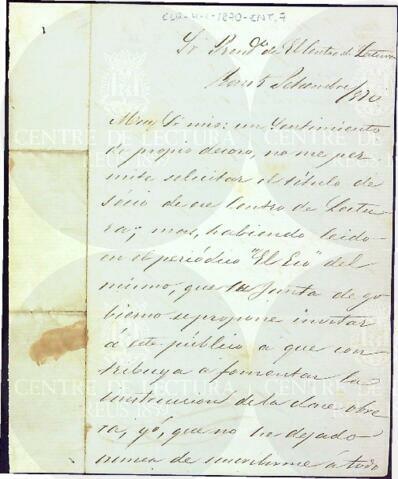 CLR-U-1-1870-ENT.7
Sr Presid.te de El Centro de Lectura
Reus 5 Setiembre 1870
Muy Sr mio: un sentimiento
de propio decoro, no me per
mite solicitar el título de
sócio de ese Centro de Lectu
ra; mas, habiendo leido
en el periódico "El Eco" del
mismo, que la Junta de go
bierno se propone invitar
á este público a que con
tribuya á fomentar la
instruccion de la clase obre
ra, yo, que no he dejado
nunca de suscribirme á todo
CENTRE DE LECTURA
REUS 1859